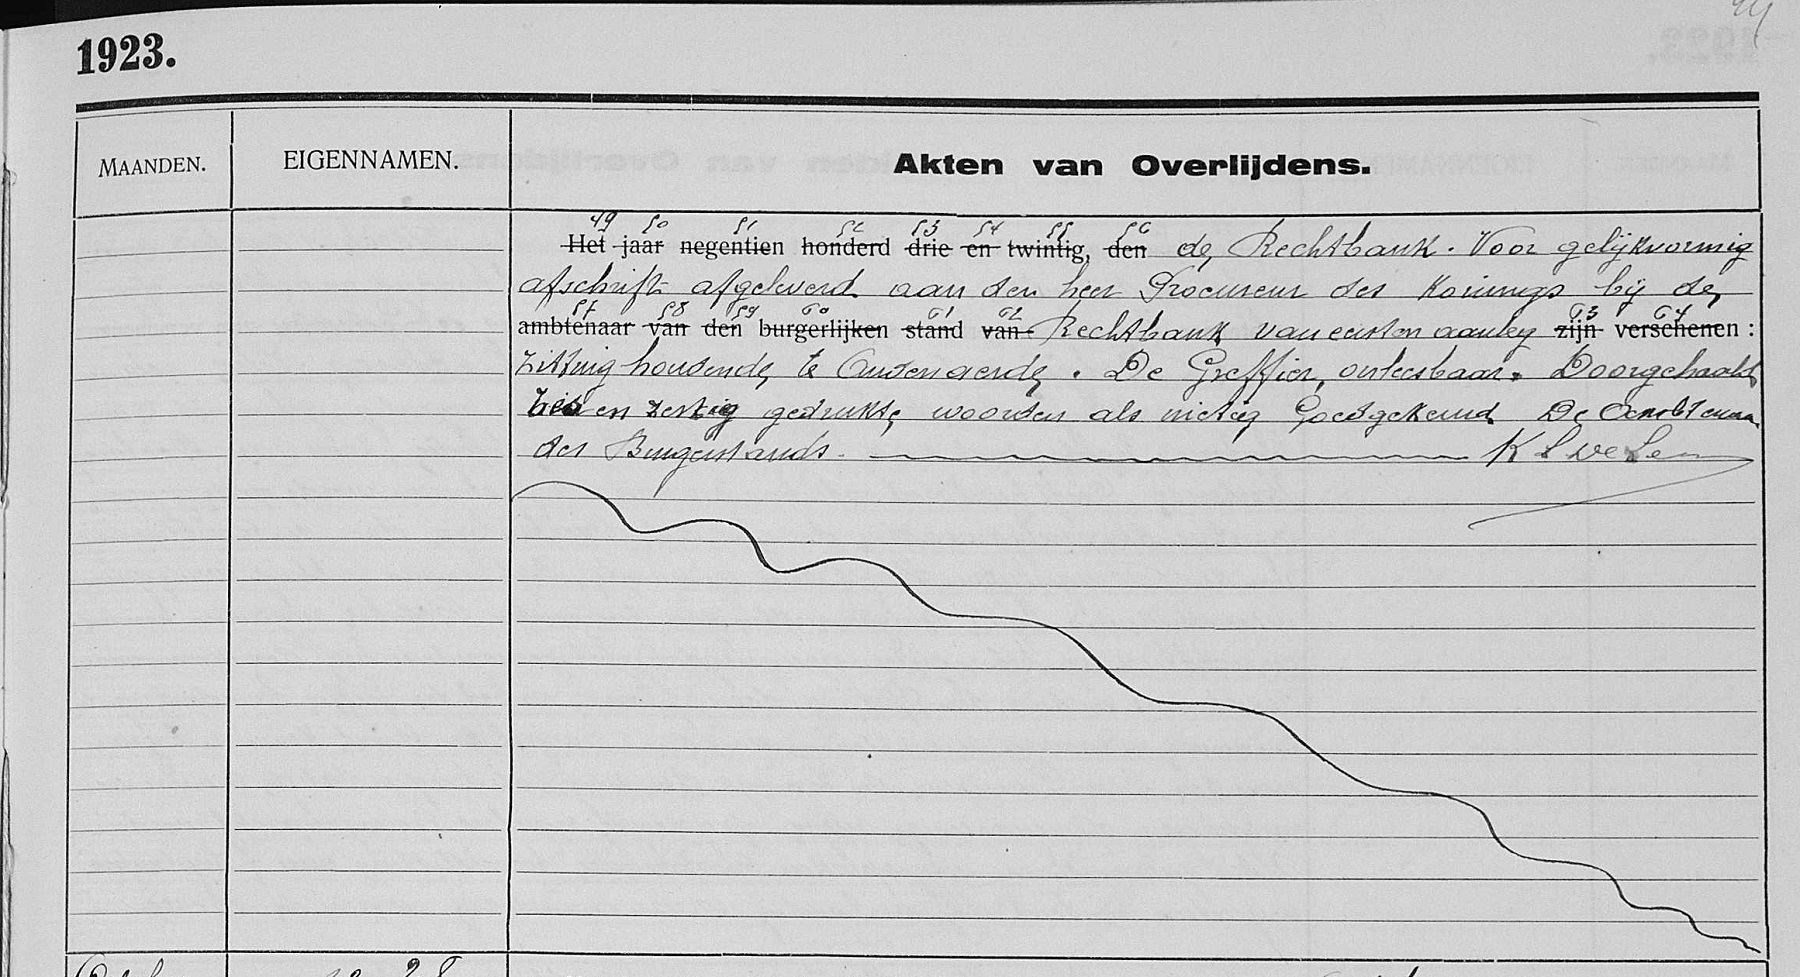 1923.
MAANDEN. EIGENNAMEN. Akten van Overlijdens.
49 50 51 52 53 54 55 56
Het jaar negentien honderd drie en twintig, den de Rechtbank. Voor gelijkvormig
afschrift afgeleverd aan den heer Procureur des Konings bij de
57 58 59 60 61 62 63 64
ambtenaar van den burgerlijken stand van Rechtbank van eersten aanleg zijn verschenen :
zitting houdende te Audenaerde. De Greffier, onleesbaar. Doorgehaald
en zestig gedrukte woorden als nietig Goedgekeurd De
des Burgerstands.
28